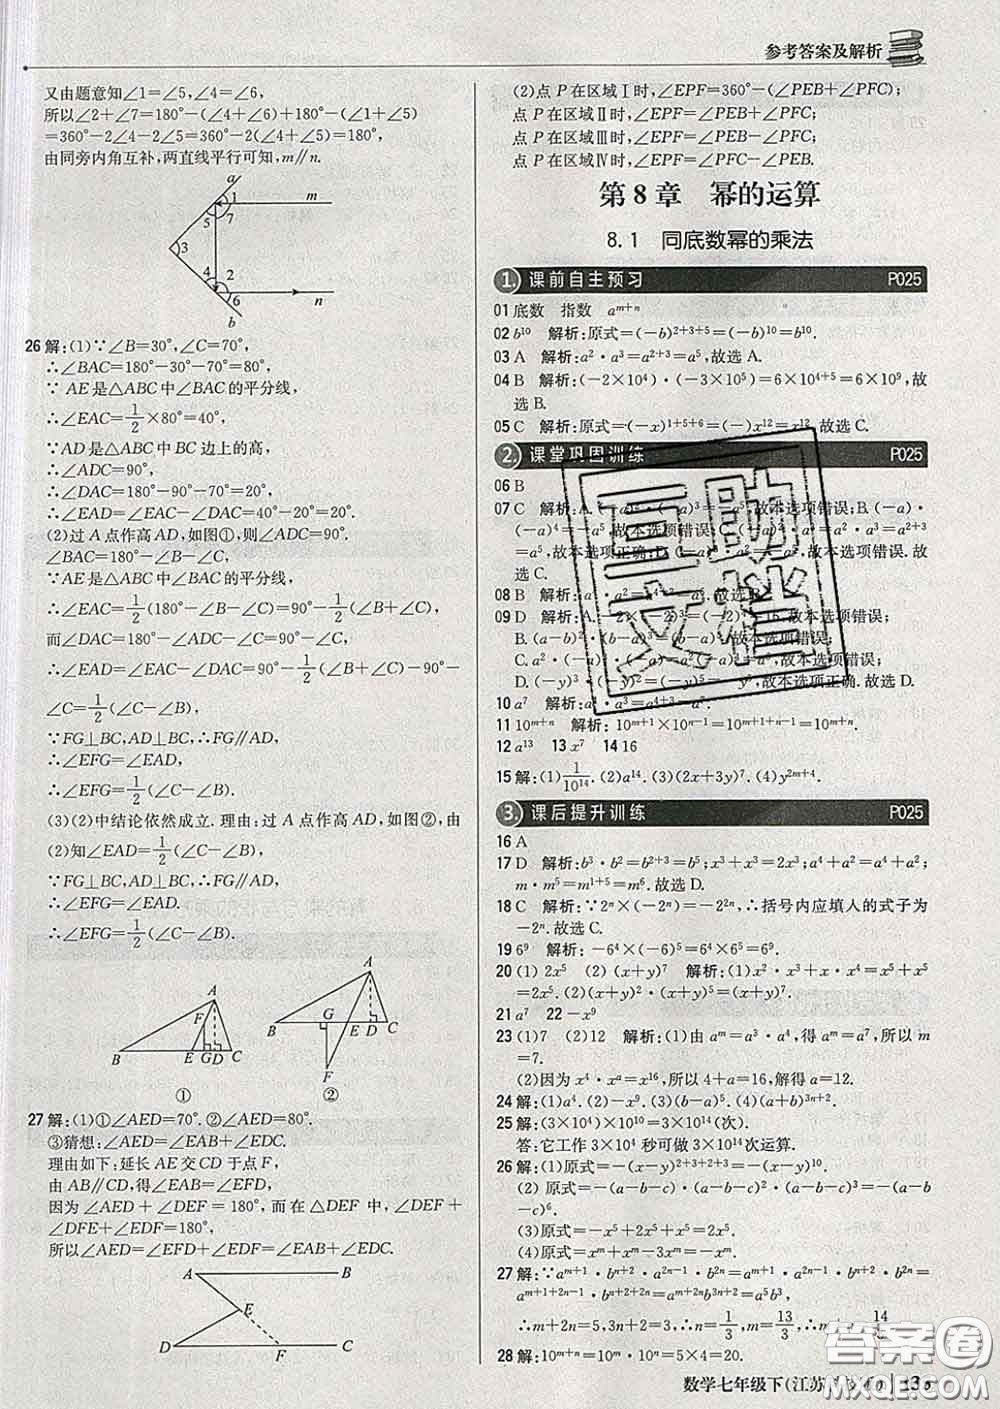 参考答案及解析
又由题意知∠1=∠5,∠4=∠6,
所以∠2+∠7=180°-(∠4+∠6)+180°-(∠1+∠5)
=360°-2∠4-2∠5=360°-2(∠4+∠5)=180°,
由同旁内角互补,两直线平行可知,m∥n.
a
1
m
5
7
3
4
2
6
n
b
26 解:(1)∵∠B=30°,∠C=70°,
∴∠BAC=180°-30°-70°=80°,
∵AE是△ABC中∠BAC的平分线,
∴∠EAC=1/2×80°=40°,
∵AD是△ABC中BC边上的高,
∴∠ADC=90°,
∴∠DAC=180°-90°-70°=20°,
∴∠EAD=∠EAC-∠DAC=40°-20°=20°.
(2)过A点作高AD,如图①,则∠ADC=90°.
∠BAC=180°-∠B-∠C,
∵AE是△ABC中∠BAC的平分线,
∴∠EAC=1/2(180°-∠B-∠C)=90°-1/2(∠B+∠C),
而∠DAC=180°-∠ADC-∠C=90°-∠C,
∴∠EAD=∠EAC-∠DAC=90°-1/2(∠B+∠C)-90°-
∠C=1/2(∠C-∠B),
∵FG⊥BC,AD⊥BC,∴FG∥AD,
∴∠EFG=∠EAD,
∴∠EFG=1/2(∠C-∠B)
(3)(2)中结论依然成立.理由:过A点作高AD,如图②,由
(2)知∠EAD=1/2(∠C-∠B),
∵FG⊥BC,AD⊥BC,∴FG∥AD,
∴∠EFG=∠EAD.
∴∠EFG=1/2(∠C-∠B).
A
F
B
E
G
D
C
①
A
G
B
E
D
C
F
②
27 解:(1)①∠AED=70°.②∠AED=80°.
③猜想:∠AED=∠EAB+∠EDC.
理由如下:延长AE交CD于点F,
由AB∥CD,得∠EAB=∠EFD,
因为∠AED+∠DEF=180°,而在△DEF中,∠DEF+
∠DFE+∠EDF=180°,
所以∠AED=∠EFD+∠EDF=∠EAB+∠EDC.
A
B
E
D
F
C
(2)点P在区域Ⅰ时,∠EPF=360°-(∠PEB+∠PFC);
点P在区域Ⅱ时,∠EPF=∠PEB+∠PFC;
点P在区域Ⅲ时,∠EPF=∠PEB-∠PFC;
点P在区域Ⅳ时,∠EPF=∠PFC-∠PEB.
第8章 幂的运算
8.1 同底数幂的乘法
1. 课前自主预习 P025
01 底数 指数 a^{m+n}
02 b^{10} 解析:原式=(-b)^{2+3+5}=(-b)^{10}=b^{10}.
03 A 解析:a²·a³=a^{2+3}=a⁵,故选A.
04 B 解析:(-2×10⁴)·(-3×10⁵)=6×10^{4+5}=6×10⁹,故
选B.
05 C 解析:原式=(-x)^{1+5+6}=(-x)^{12}=x^{12}.故选C.
2. 课堂巩固训练 P025
06 B
07 C 解析:A.
a⁵,故本选项错误;B.(-
a)·(-a)⁴=-a⁵,故本选项错误;C.
a²·a³=a^{2+3}
=a⁵,故本选项正确;D.
故本选项错误.故
选C.
08 B 解析:
09 D 解析:A.
=(-2)⁴=16.故本选项错误;
B.(a-b)²·(b-a)³=
故本选项错误;
C.a²·(-a)
故本选项错误;
D.(-y)³·(-y)²=(-y)⁵=-y⁵,故本选项正确.故选D.
10 a⁷ 解析:a⁴·a³=a^{4+3}=a⁷.
11 10^{m+n} 解析:10^{m+1}×10^{n-1}=10^{m+1+n-1}=10^{m+n}.
12 a^{13} 13 x⁷ 14 16
15 解:(1)1/10^{14}.(2)a^{14}.(3)(2x+3y)⁷.(4)y^{2m+4}.
3. 课后提升训练 P025
16 A
17 D 解析:b³·b²=b^{2+3}=b⁵;x³+x³=2x³;a⁴+a²=a⁴+a²;
m·m⁵=m^{1+5}=m⁶.故选D.
18 C 解析:∵2ⁿ×(-2ⁿ)=-2^{2n},∴括号内应填入的式子为
-2ⁿ.故选C.
19 6⁹ 解析:-6⁴×(-6)⁵=6⁴×6⁵=6⁹.
20 (1)2x⁵ (2)(x+y)⁷ 解析:(1)x²·x³+x·x⁴=x⁵+x⁵
=2x⁵.(2)(x+y)²·(x+y)⁵=(x+y)^{2+5}=(x+y)⁷.
21 a⁷ 22 -x⁹
23 (1)7 (2)12 解析:(1)由a^m=a³·a⁴,得a^m=a⁷,所以m
=7.
(2)因为x⁴·x^a=x^{16},所以4+a=16,解得a=12.
24 解:(1)a⁴.(2)-x⁹.(3)(b-a)⁵.(4)(a+b)^{3n+2}.
25 解:(3×10⁴)×10^{10}=3×10^{14}(次).
答:它工作3×10⁴秒可做3×10^{14}次运算.
26 解:(1)原式=-(x-y)^{2+3+2+3}=-(x-y)^{10}.
(2)原式=-(a-b-c)·(a-b-c)²·(a-b-c)³=-(a-b
-c)⁶.
(3)原式=-x⁵+2x⁵+x⁵=2x⁵.
(4)原式=x^m+x^m-3x^m=-x^m.
27 解:∵a^{m+1}·b^{n+2}·a^{2n-1}·b^{2n}=a^{m+1}·a^{2n-1}·b^{n+2}·b^{2n}=
a^{m+1+2n-1}·b^{n+2+2n}=a^{m+2n}b^{3n+2}=a⁵b³,
∴m+2n=5,3n+2=3,∴n=1/3,m=13/3,
28 解:10^{m+n}=10^m·10ⁿ=5×4=20.
数学七年级下(江苏
互助文档
答案圈